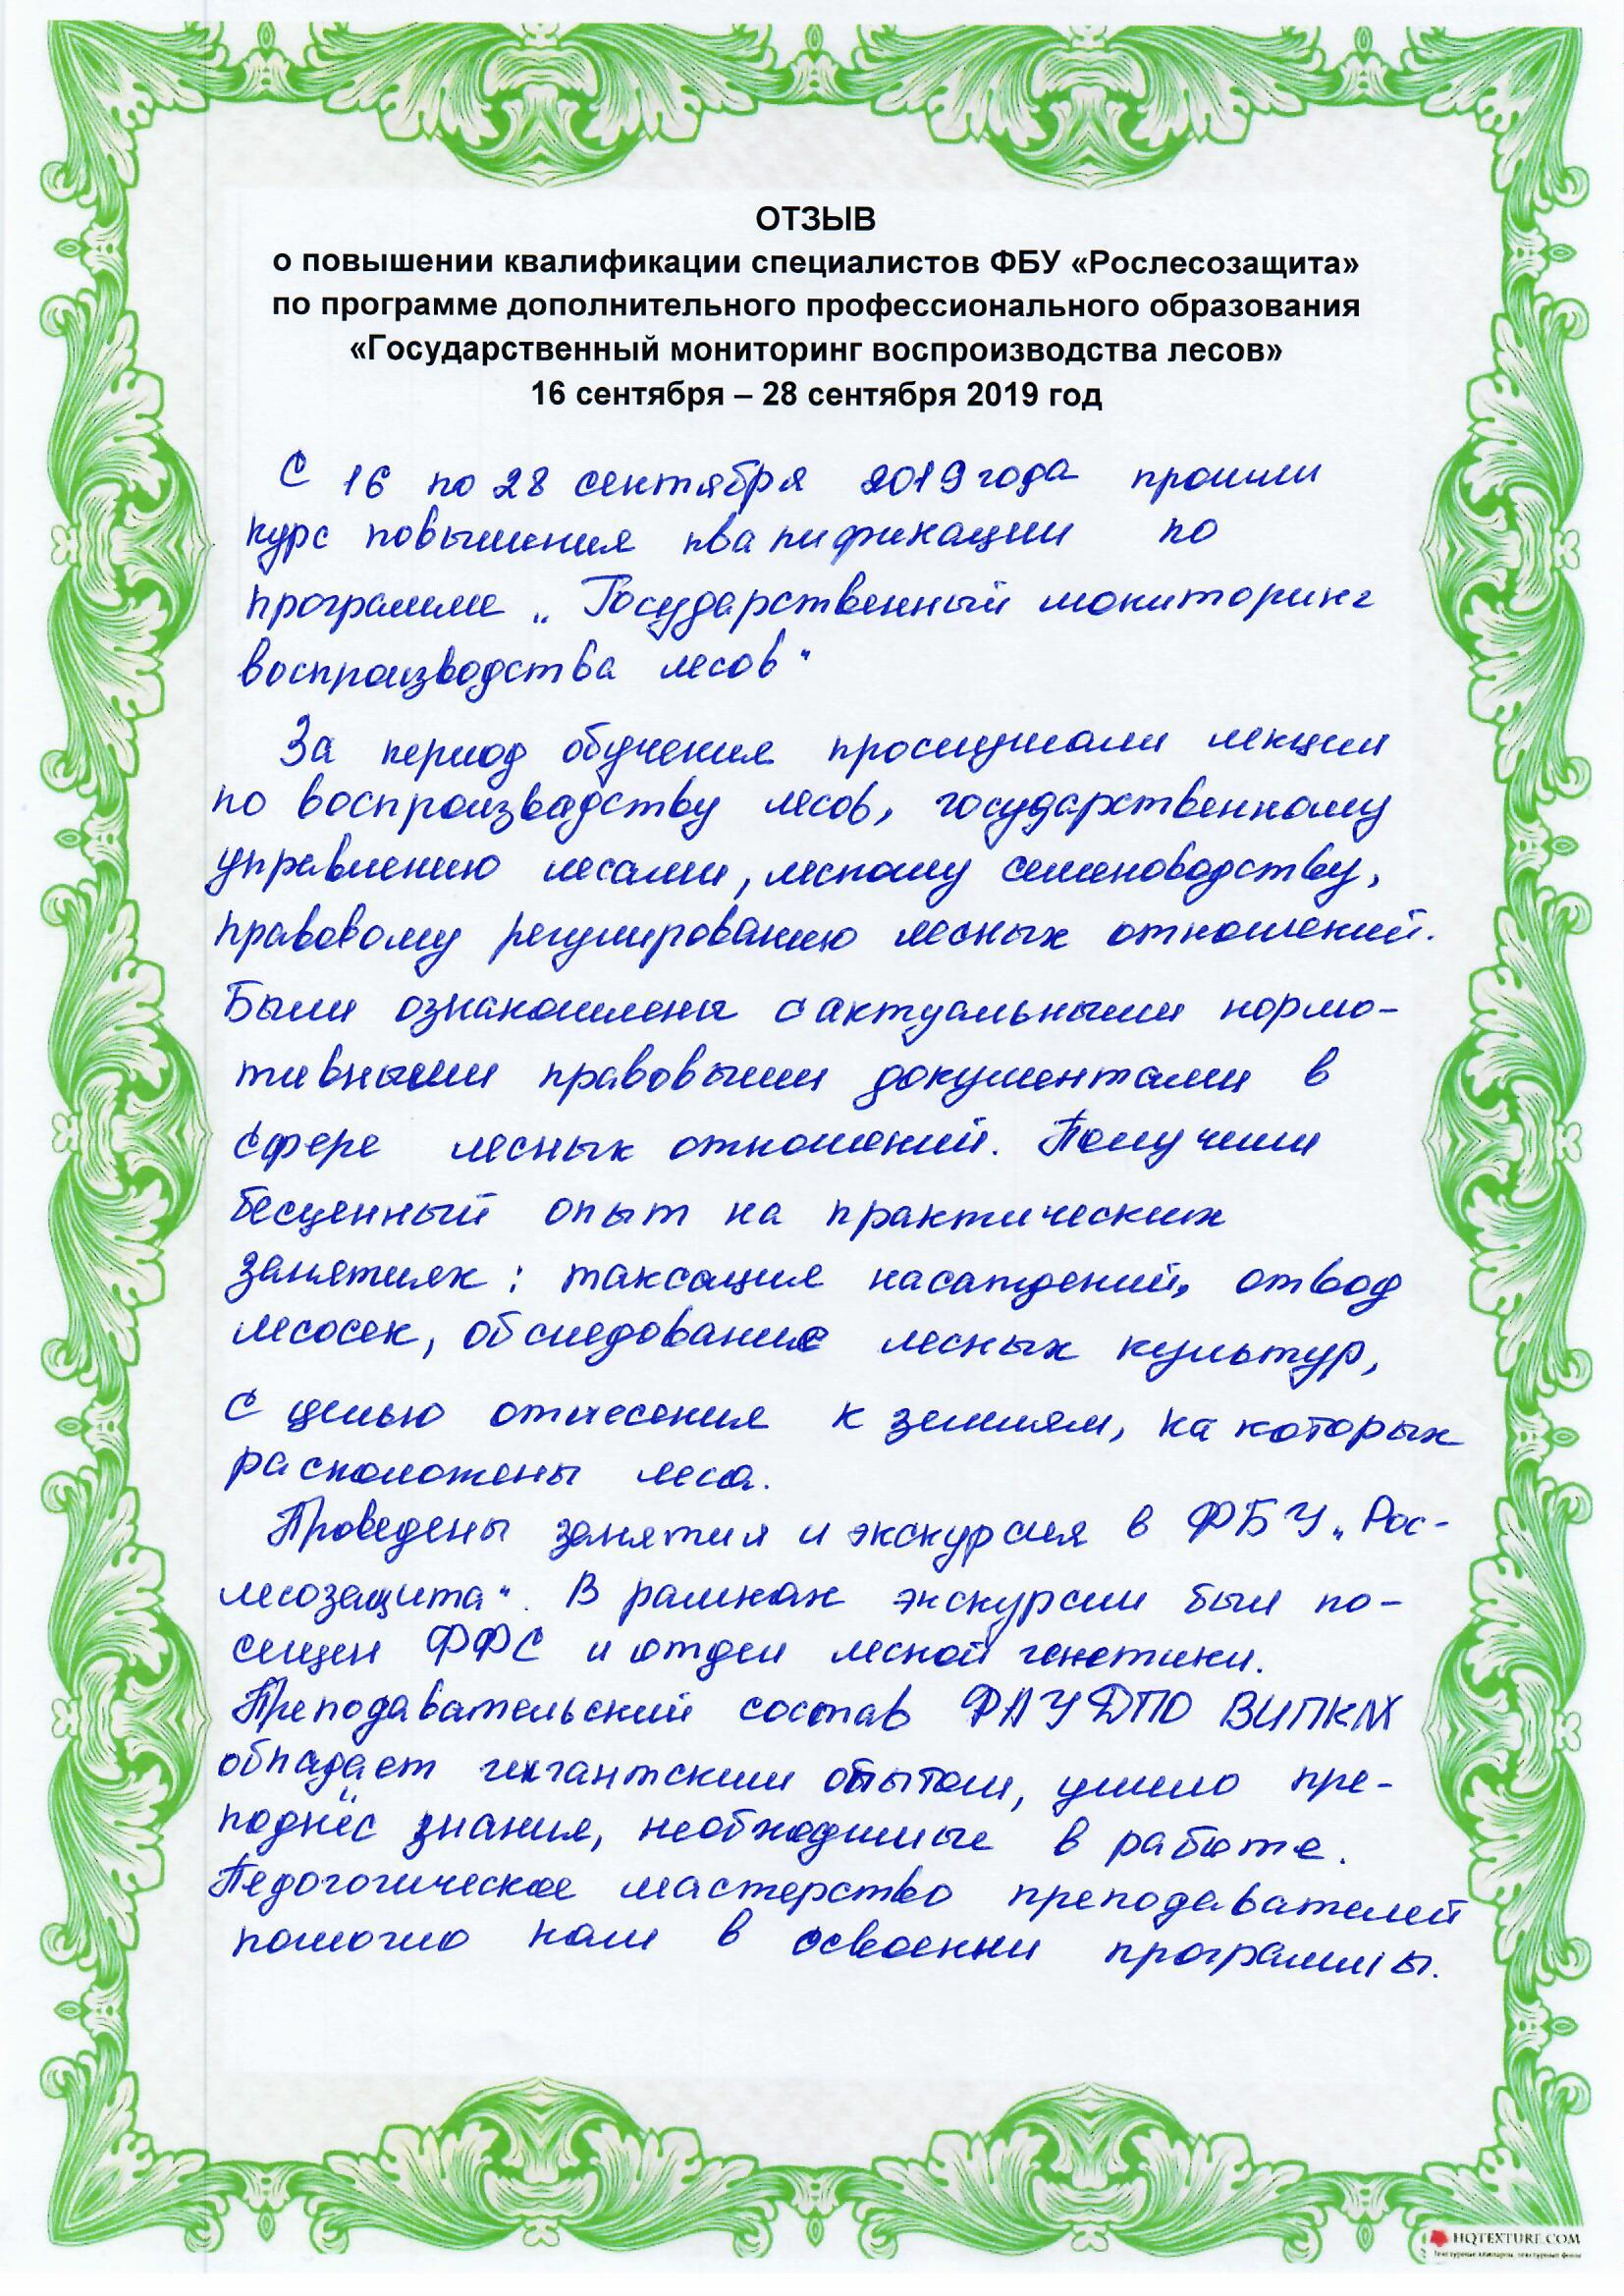 ОТЗЫВ
о повышении квалификации специалистов ФБУ «Рослесозащита»
по программе дополнительного профессионального образования
«Государственный мониторинг воспроизводства лесов»
16 сентября – 28 сентября 2019 год
С 16 по 28 сентября 2019 года прошли
курс повышения квалификации по
программе „Государственный мониторинг
воспроизводства лесов“
За период обучения прослушали лекции
по воспроизводству лесов, государственному
управлению лесами, лесному семеноводству,
правовому регулированию лесных отношений.
Были ознакомлены с актуальными норма-
тивными правовыми документами в
сфере лесных отношений. Получили
бесценный опыт на практических
занятиях: таксация насаждений, отвод
лесосек, обследование лесных культур,
с целью отнесения к землям, на которых
расположены леса.
Проведены занятия и экскурсия в ФБУ „Рос-
лесозащита“. В рамках экскурсии был по-
сещен ФФС и отдел лесной генетики.
Преподавательский состав ФАУ ДПО ВИПКЛХ
обладает гигантским опытом, умело пре-
поднёс знания, необходимые в работе.
Педогогическое мастерство преподавателей
помогло нам в освоении программы.
HQTEXTURE.COM